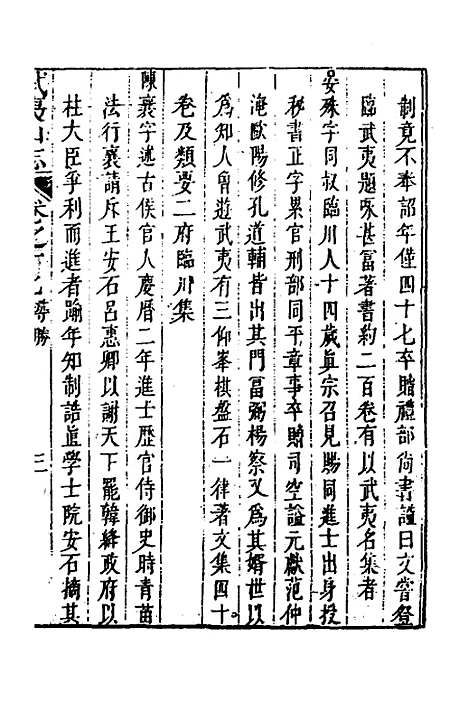 制竟不奉詔年僅四十七卒贈禮部尚書謚曰文嘗登
臨武夷題咏甚富著書約二百卷有以武夷名集者
晏殊字同叔臨川人十四歲眞宗召見賜同進士出身投
秘書正字累官刑部同平章事卒贈司空謚元獻范仲
淹歐陽修孔道輔皆出其門富弼楊察又爲其婿世以
爲知人曾遊武夷有三仰峯棋盤石一律著文集四十
卷及類要二府臨川集
陳襄字述古侯官人慶曆二年進士歷官侍御史時青苗
法行襄請斥王安石呂惠卿以謝天下罷韓絳政府以
杜大臣爭利而進者踰年知制誥直學士院安石摘其
武夷山志 卷之 尋勝 三